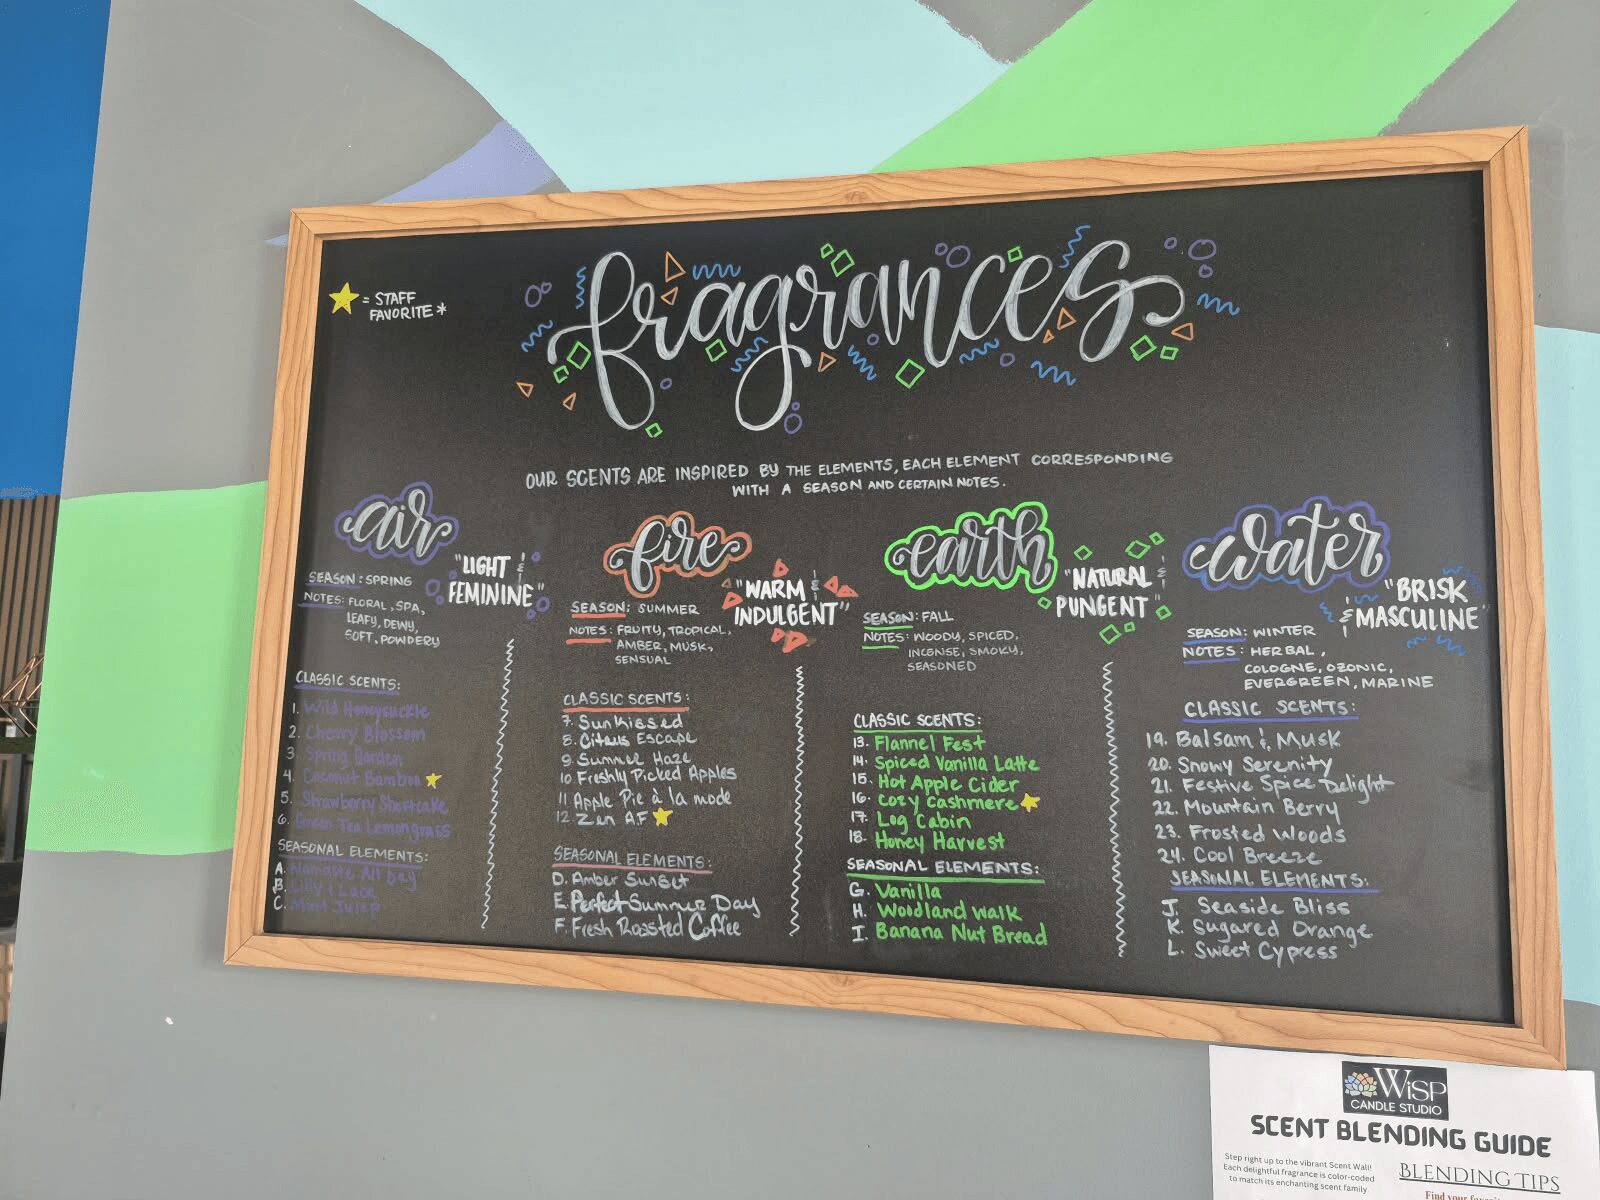 = STAFF
FAVORITE *
fragrances
OUR SCENTS ARE INSPIRED BY THE ELEMENTS, EACH ELEMENT CORRESPONDING
WITH A SEASON AND CERTAIN NOTES.
air
"LIGHT &
FEMININE"
SEASON: SPRING
NOTES: FLORAL, SPA,
LEAFY, DEWY,
SOFT, POWDERY
CLASSIC SCENTS:
1. Wild Honeysuckle
2. Cherry Blossom
3. Spring Garden
4. Coconut Bamboo
5. Strawberry Shortcake
6. Green Tea Lemongrass
SEASONAL ELEMENTS:
A. Namaste All Day
B. Lilly & Lace
C. Mint Julep
fire
"WARM &
INDULGENT"
SEASON: SUMMER
NOTES: FRUITY, TROPICAL,
AMBER, MUSK,
SENSUAL
CLASSIC SCENTS:
7. Sunkissed
8. Citrus Escape
9. Summer Haze
10. Freshly Picked Apples
11 Apple Pie à la mode
12 Zen AF
SEASONAL ELEMENTS:
D. Amber Sunset
E. Perfect Summer Day
F. Fresh Roasted Coffee
earth
"NATURAL &
PUNGENT"
SEASON: FALL
NOTES: WOODY, SPICED,
INCENSE, SMOKY,
SEASONED
CLASSIC SCENTS:
13. Flannel Fest
14. Spiced Vanilla Latte
15. Hot Apple Cider
16. Cozy Cashmere
17. Log Cabin
18. Honey Harvest
SEASONAL ELEMENTS:
G. Vanilla
H. Woodland Walk
I. Banana Nut Bread
water
"BRISK
& MASCULINE"
SEASON: WINTER
NOTES: HERBAL,
COLOGNE, OZONIC,
EVERGREEN, MARINE
CLASSIC SCENTS:
19. Balsam & Musk
20. Snowy Serenity
21. Festive Spice Delight
22. Mountain Berry
23. Frosted Woods
24. Cool Breeze
SEASONAL ELEMENTS:
J. Seaside Bliss
K. Sugared Orange
L. Sweet Cypress
WiSP
CANDLE STUDIO
SCENT BLENDING GUIDE
Step right up to the vibrant Scent Wall!
Each delightful fragrance is color-coded
to match its enchanting scent family.
BLENDING TIPS
Find your